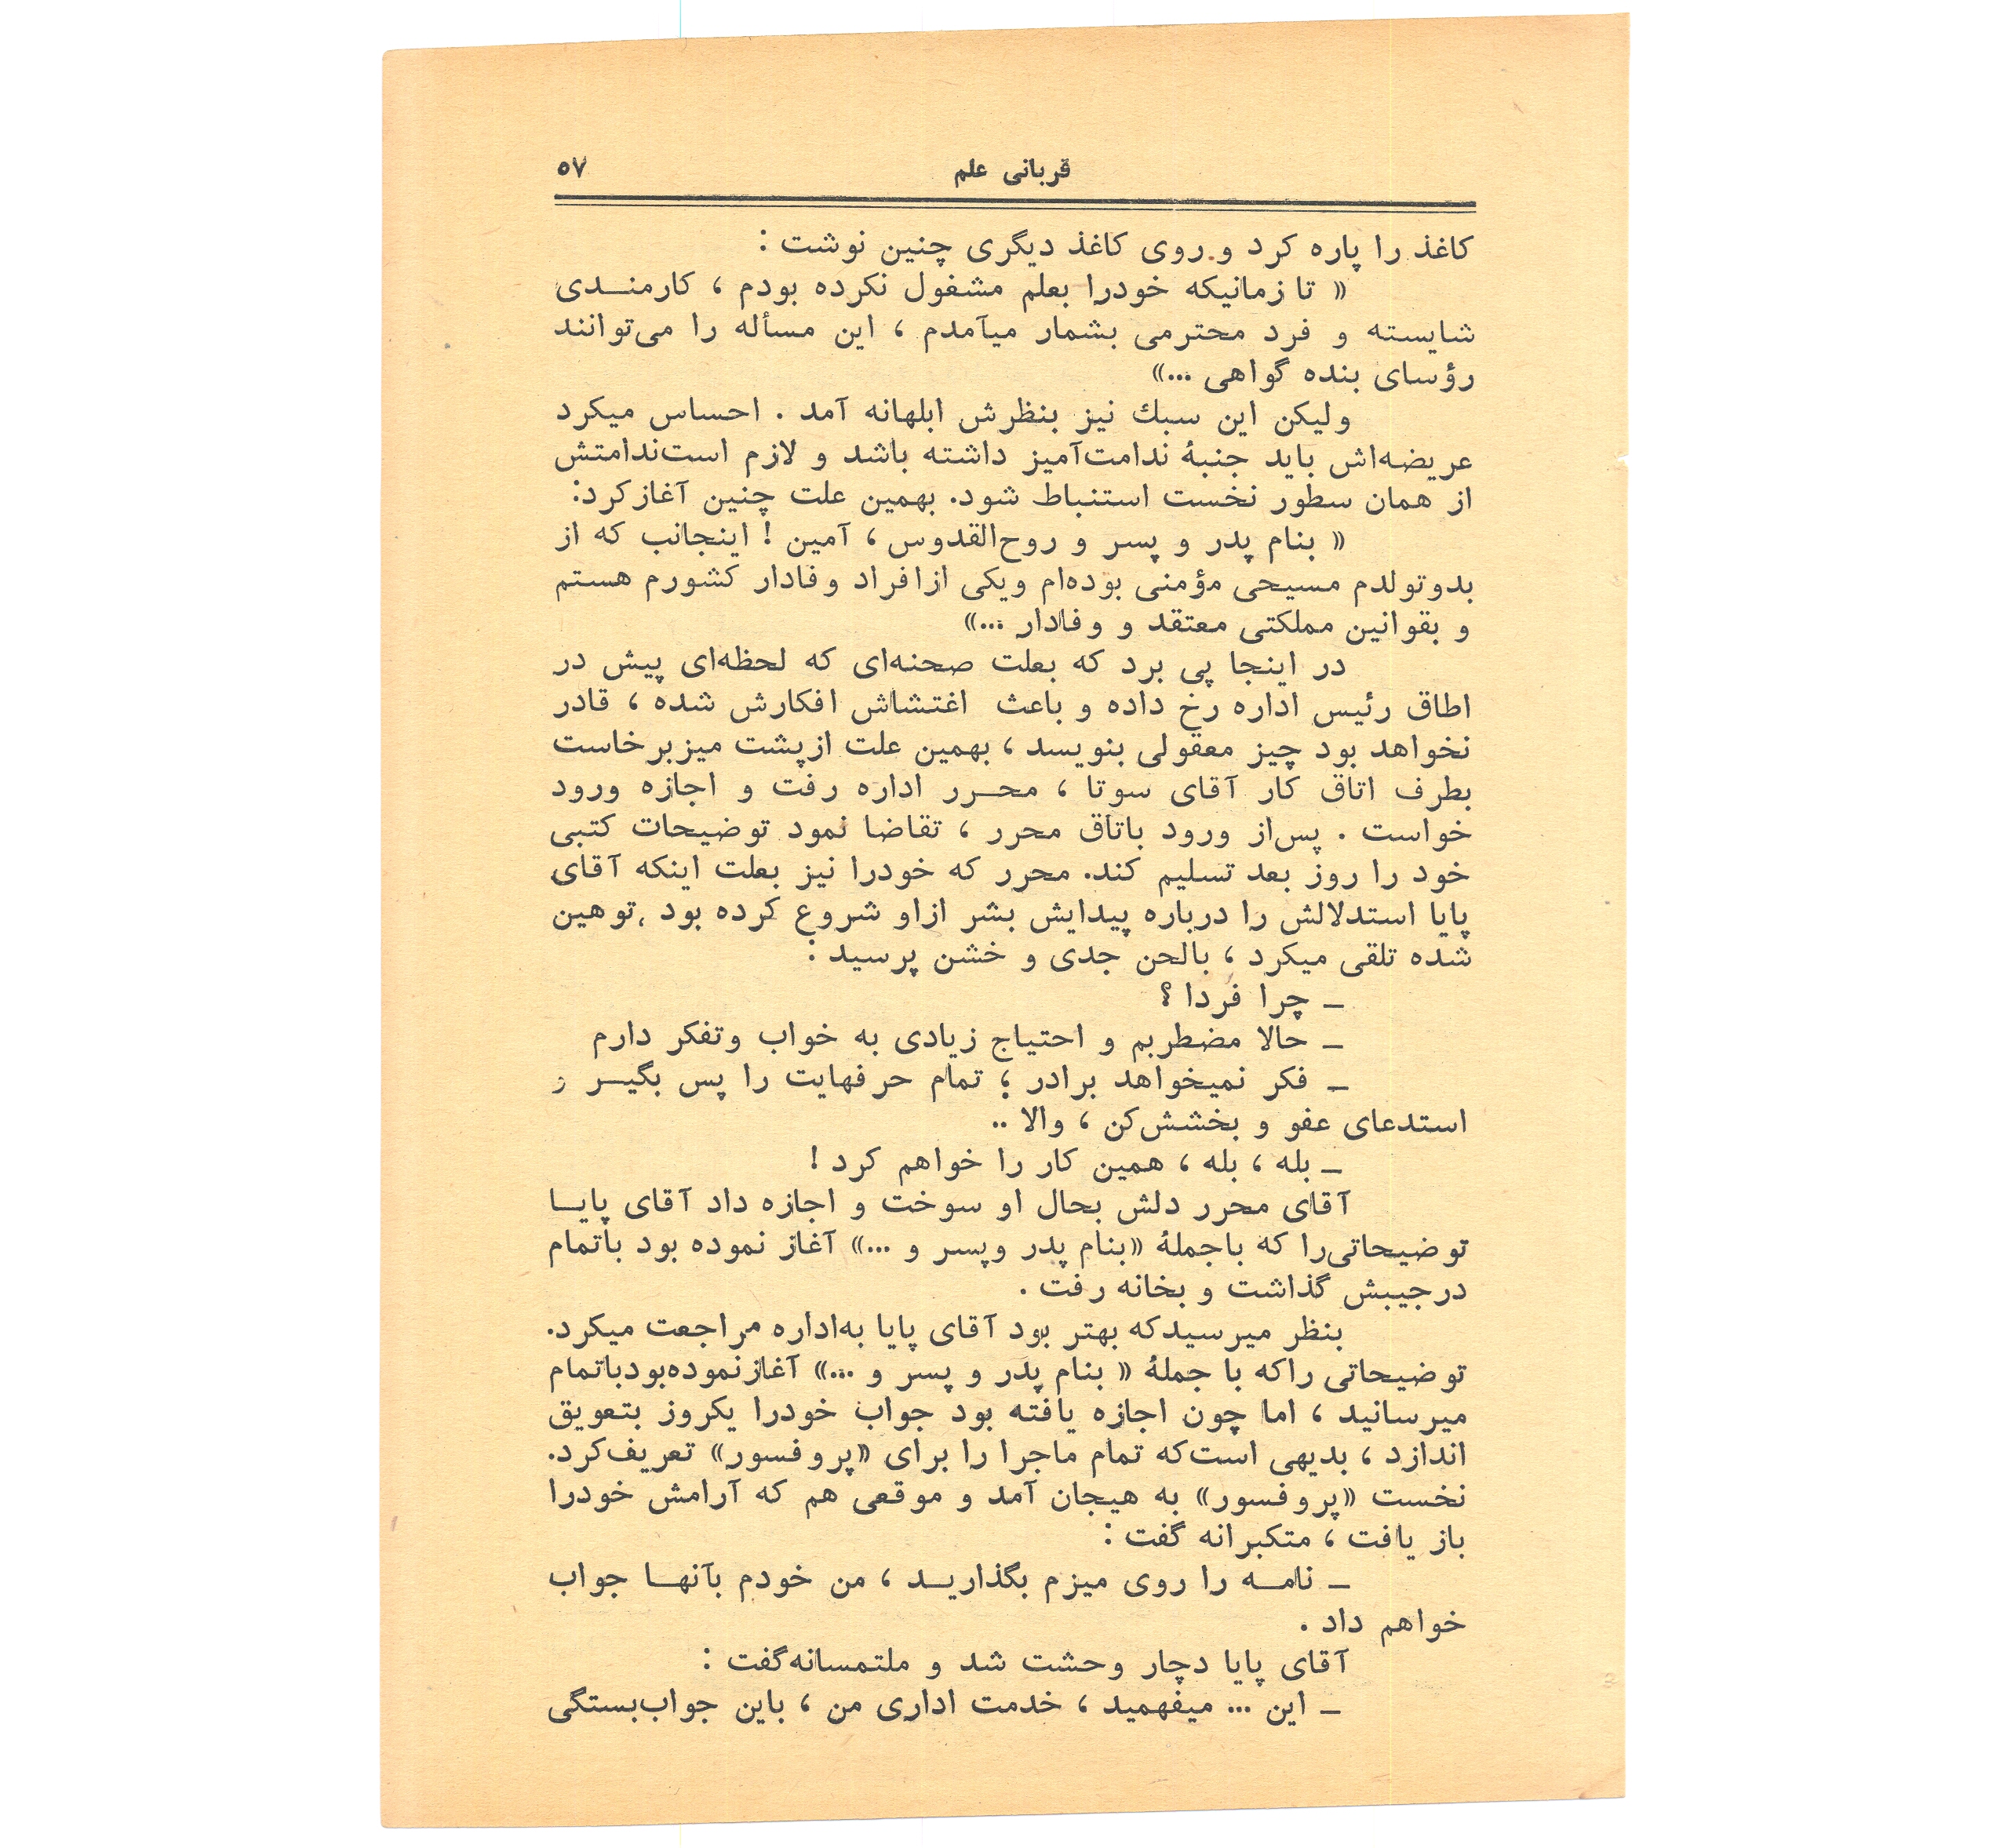 قربانی علم ۵۷
کاغذ را پاره کرد و روی کاغذ دیگری چنین نوشت :
« تا زمانیکه خودرا بعلم مشغول نکرده بودم ، کارمنـدی
شایسته و فرد محترمی بشمار میآمدم ، این مسأله را می‌توانند
رؤسای بنده گواهی ...»
ولیکن این سبك نیز بنظرش ابلهانه آمد . احساس میکرد
عریضه‌اش باید جنبهٔ ندامت‌آمیز داشته باشد و لازم است‌ندامتش
از همان سطور نخست استنباط شود. بهمین علت چنین آغازکرد:
« بنام پدر و پسر و روح‌القدوس ، آمین ! اینجانب که از
بدوتولدم مسیحی مؤمنی بوده‌ام ویکی ازافراد وفادار کشورم هستم
و بقوانین مملکتی معتقد و وفادار ...»
در اینجا پی برد که بعلت صحنه‌ای که لحظه‌ای پیش در
اطاق رئیس اداره رخ داده و باعث اغتشاش افکارش شده ، قادر
نخواهد بود چیز معقولی بنویسد ، بهمین علت ازپشت میزبرخاست
بطرف اتاق کار آقای سوتا ، محـرر اداره رفت و اجازه ورود
خواست . پس‌از ورود باتاق محرر ، تقاضا نمود توضیحات کتبی
خود را روز بعد تسلیم کند. محرر که خودرا نیز بعلت اینکه آقای
پایا استدلالش را درباره پیدایش بشر ازاو شروع کرده بود ،توهین
شده تلقی میکرد ، بالحن جدی و خشن پرسید :
ـ چرا فردا ؟
ـ حالا مضطربم و احتیاج زیادی به خواب وتفکر دارم
ـ فکر نمیخواهد برادر ؛ تمام حرفهایت را پس بگیـر و
استدعای عفو و بخشش‌کن ، والا ..
ـ بله ، بله ، همین کار را خواهم کرد !
آقای محرر دلش بحال او سوخت و اجازه داد آقای پایـا
توضیحاتی‌را که باجملهٔ «بنام پدر وپسر و ...» آغاز نموده بود باتمام
درجیبش گذاشت و بخانه رفت .
بنظر میرسیدکه بهتر بود آقای پایا به‌اداره مراجعت میکرد.
توضیحاتی راکه با جملهٔ « بنام پدر و پسر و ...» آغازنموده‌بودباتمام
میرسانید ، اما چون اجازه یافته بود جواب خودرا یکروز بتعویق
اندازد ، بدیهی است‌که تمام ماجرا را برای «پروفسور» تعریف‌کرد.
نخست «پروفسور» به هیجان آمد و موقعی هم که آرامش خودرا
باز یافت ، متکبرانه گفت :
ـ نامـه را روی میزم بگذاریـد ، من خودم بآنهـا جواب
خواهم داد .
آقای پایا دچار وحشت شد و ملتمسانه‌گفت :
ـ این ... میفهمید ، خدمت اداری من ، باین جواب‌بستگی